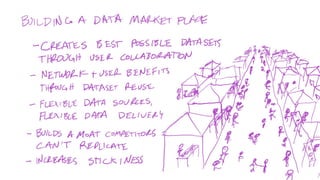 BUILDING A DATA MARKET PLACE
- CREATES BEST POSSIBLE DATASETS
THROUGH USER COLLABORATION
- NETWORK + USER BENEFITS
THROUGH DATASET REUSE
- FLEXIBLE DATA SOURCES,
FLEXIBLE DATA DELIVERY
- BUILDS A MOAT COMPETITORS
CAN'T REPLICATE
- INCREASES STICKINESS